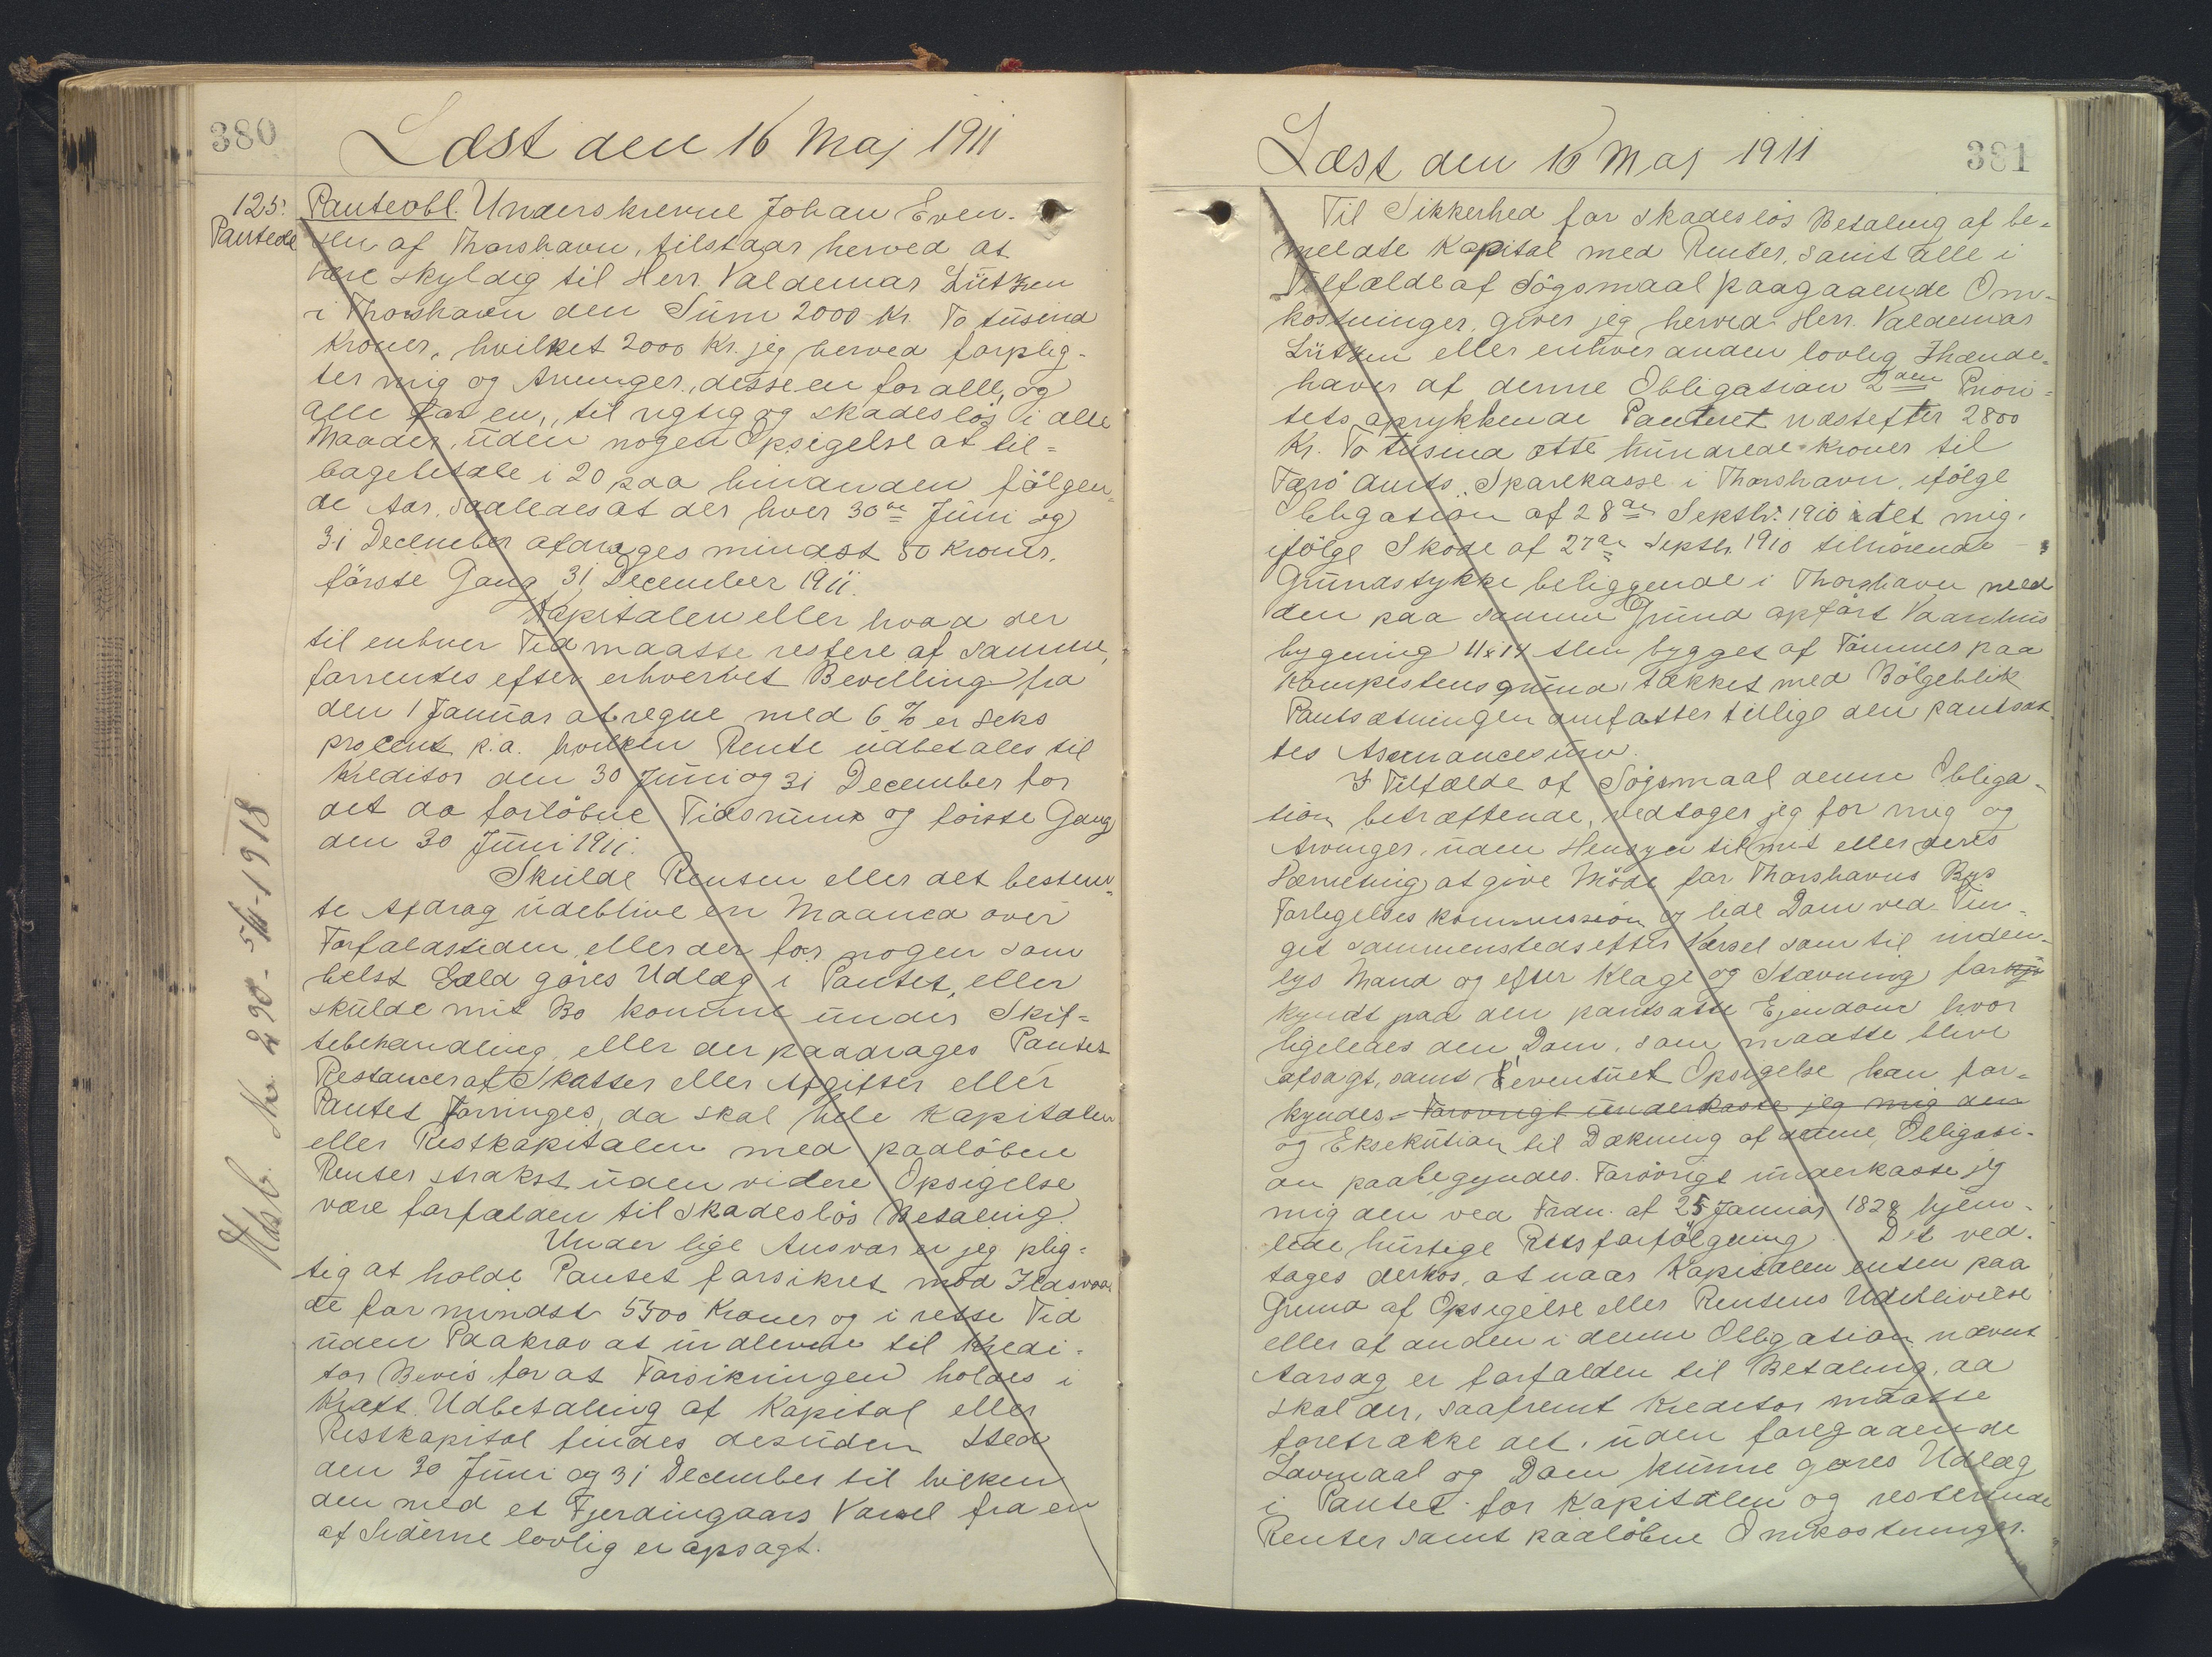 380
Læst den 16 Maj 1911
125.
Panteobl. Underskrevne Johan Even-
Pantede
sen af Thorshavn, tilstaar herved at
være skyldig til Herr. Valdemar Lützen
i Thorshavn den Sum 2000 Kr. To tusind
Kroner, hvilket 2000 Kr. jeg herved forplig-
ter mig og Arvinger, desse en for alle, og
alle for en, til rigtig og skadeslös i alle
Maader, uden nogen Opsigelse at til=
bagebetale i 20 paa hinanden fölgen=
de Aar, saaledes at der hver 30te Juni og
31 December afdrages mindst 50 Kroner,
förste Gang 31 December 1911.
Kapitalen eller hvad der
til enhver Tid maatte restere af samme,
forrentes efter erhvervet Bevilling fra
den 1 Januar at regne med 6 % er seks
procent p.a. hvilken Rente udbetales til
Kreditor den 30 Juni og 31 December for
det da forlöbne Tidsrum og förste Gang
den 30 Juni 1911.
Skulde Renten eller det bestem=
te Afdrag udeblive en Maaned over
Forfaldstiden eller der for nogen som
helst Gæld göres Udlæg i Pantet, eller
skulde mit Bo komme under Skif=
tebehandling, eller der paadrages Pantet
Restancer af Skatter eller Afgifter eller
Pantet forringes, da skal hele Kapitalen
eller Restkapitalen med paalöbne
Renter strakst uden videre Opsigelse
være forfalden til skadeslös Betaling.
Under lige Ansvar er jeg plig=
tig at holde Pantet forsikret mod Ildsvaa
de for mindst 5500 Kroner og i rette Tid
uden Paakrav at indlevere til Kredi=
tor Bevis for at Forsikringen holdes i
Kraft. Udbetaling af Kapital eller
Restkapital findes desuden Sted
den 30 Juni og 31 December til hvilken
den med et Fjerdingaars Varsel fra en
af Siderne lovlig er opsagt.
Afl. Nr. 290 - 5/11-1918
Læst den 16 Maj 1911
381
Til Sikkerhed for skadeslös Betaling af be=
meldte Kapital med Renter, samt alle i
Tilfælde af Sögsmaal paagaaende Om-
kostninger, giver jeg herved Herr. Valdemar
Lützen eller enhver anden lovlig Ihænde=
haver af denne Obligation 2den Priori=
tets oprykkende Panteret næstefter 2800
Kr. To tusind otte hundrede Kroner til
Færö Amts Sparekasse i Thorshavn, ifölge
Obligation af 28de Septbr. 1910 i det mig
ifölge Sköde af 27de Septbr. 1910 tilhörende
Grundstykke beliggende i Thorshavn med
den paa samme Grund opfört Vaanhus
bygning 11x14 Alen bygget af Tömmer paa
Kampestensgrund, takket med Bölgeblik
Pantsætningen omfatter tillige den pantsat
tes Assurancesum.
I Tilfælde af Sögsmaal denne Obliga-
tion betræffende, vedtager jeg for mig og
Arvinger, uden Hensyn til mit eller deres
Værneting at give Möde for Thorshavns Bys
Forligelses kommission og lide Dom ved Tin-
get sammensteds efter Varsel som til inden-
bys Mand og efter Klage og Stævning forkjö
kyndt paa den pantsatte Ejendom hvor
ligeledes den Dom, som maatte blive
afsagt, samt eventuel Opsigelse kan for-
kyndes. Forövrigt underkaste jeg mig den
og Eksekution til Dækning af denne Obligati-
on paabegyndes. Forövrigt underkaste jeg
mig den ved Frdn. af 25 Januar 1828 hjem-
lede hurtige Retsforfölgning. Det ved-
tages derhos, at naar Kapitalen enten paa
Grund af Opsigelse eller Rentens Udeblivelse
eller af anden i denne Obligation nævnt
Aarsag er forfalden til Betaling, da
skal der, saafremt Kreditor maatte
foretrække det, uden foregaaende
Lovmaal og Dom kunne göres Udlæg
i Pantet for Kapitalen og resterende
Renter samt paalöbne Omkostninger.